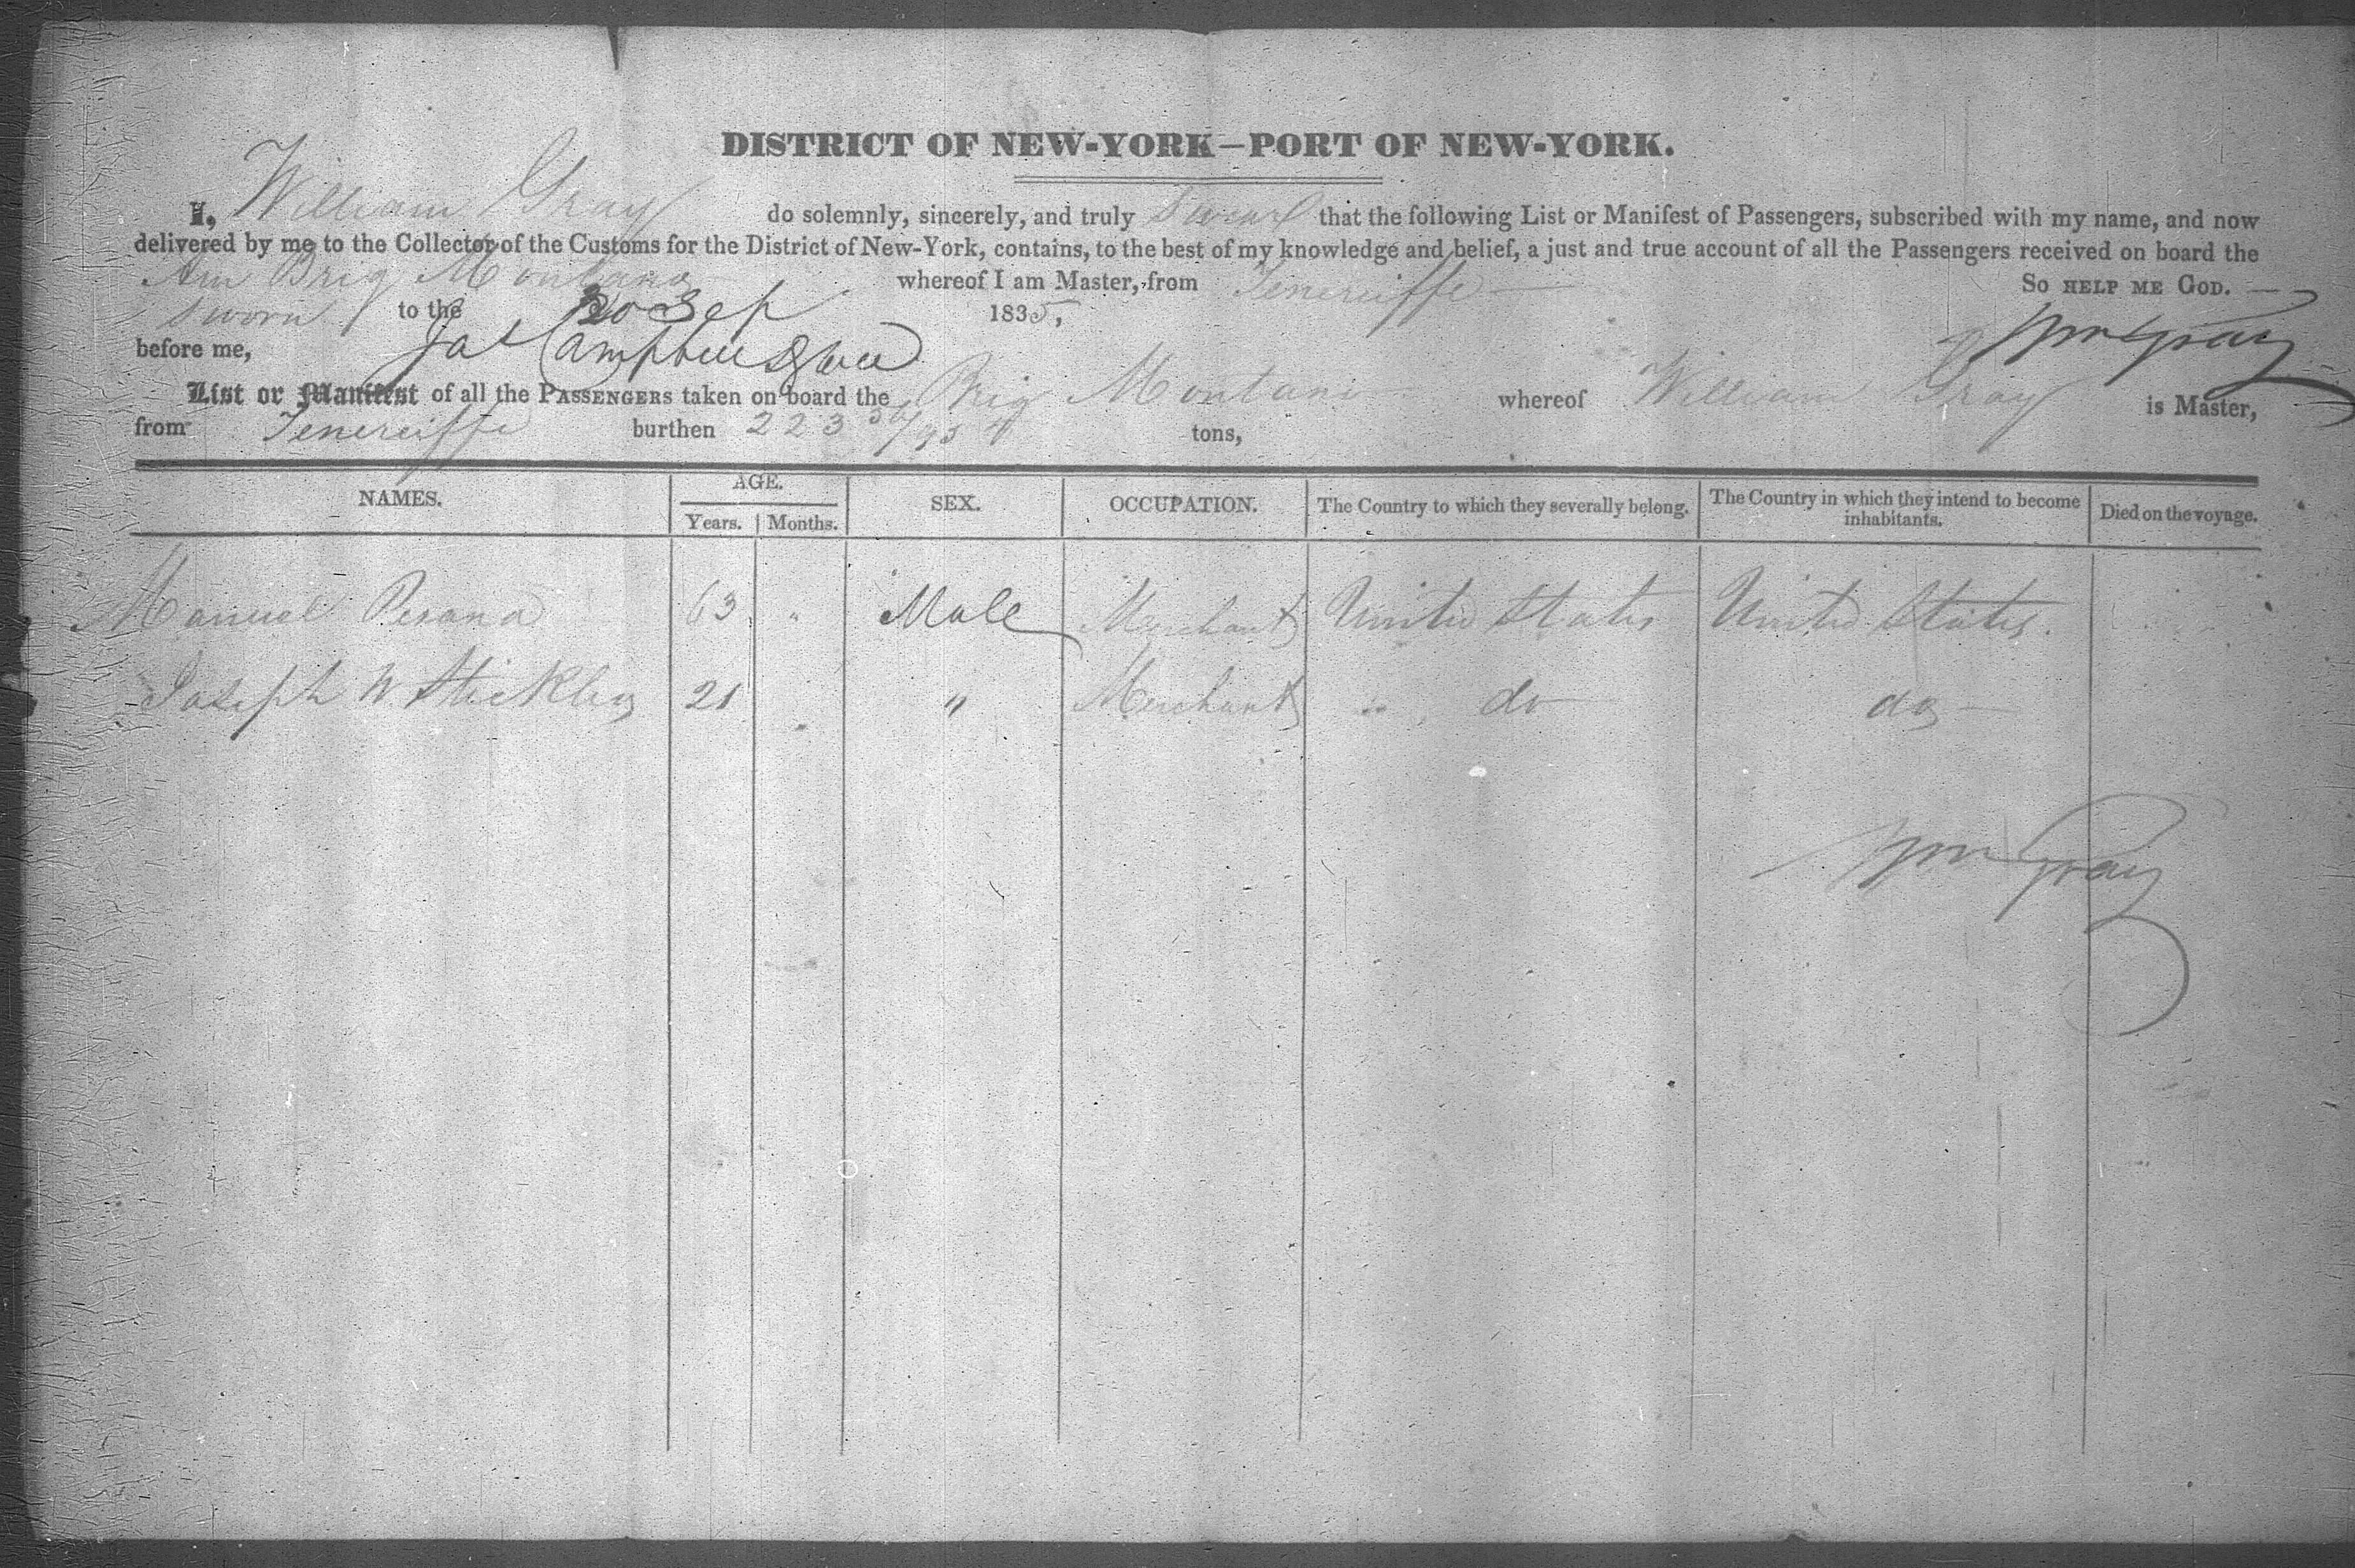 DISTRICT OF NEW-YORK—PORT OF NEW-YORK.
I, William Gray do solemnly, sincerely, and truly Swear that the following List or Manifest of Passengers, subscribed with my name, and now
delivered by me to the Collector of the Customs for the District of New-York, contains, to the best of my knowledge and belief, a just and true account of all the Passengers received on board the
Am Brig Montano whereof I am Master, from Teneriffe So HELP ME GOD.
Sworn to the 30 Sep 1835,
before me, Jas Campbell Wm Gray
List or Manifest of all the PASSENGERS taken on board the Brig Montano whereof William Gray is Master,
from Tenereiffe burthen 223 /95 tons,
NAMES. AGE. SEX. OCCUPATION. The Country to which they severally belong. The Country in which they intend to become inhabitants. Died on the voyage.
Years. Months.
Manuel 63 " Male Merchant United States United States.
Joseph W Stickley 21 " " Merchant " do do
Wm Gray